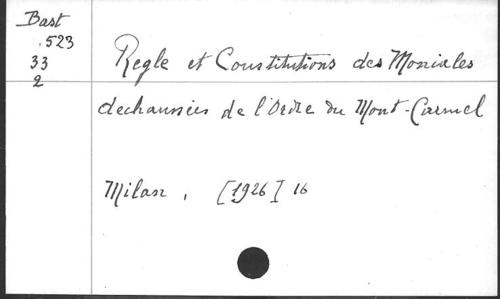 Bast
.523
33
2
Regle et Constitutions des Moniales
dechaussées de l'Ordre du Mont-Carmel
Milan, [1926] 16